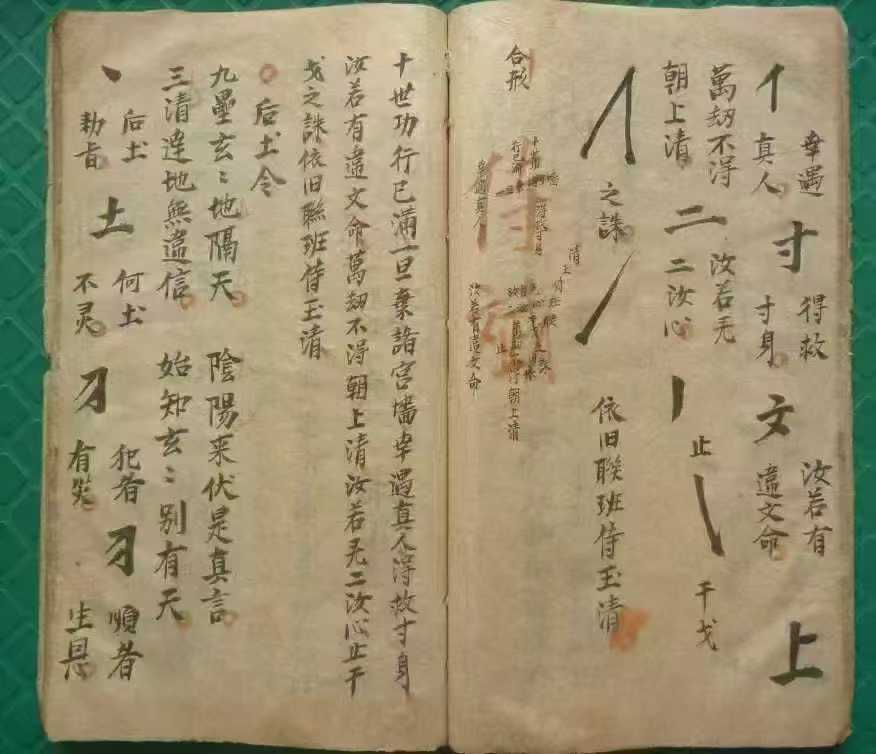 亻
幸遇
真人
寸
得救
寸身
文
汝若有
違文命
上
萬劫不得
朝上清
二
汝若无
二汝心
止
干戈
之誅
依旧聯班侍玉清
合形
幸遇真人
汝若有違文命
朝上清
十世功行已滿一旦棄諸宫墻幸遇真人得救寸身
汝若有違文命萬劫不得朝上清汝若无二汝心止干
戈之誅依旧聯班侍玉清
后土令
九壘玄〻地隔天 陰陽来伏是真言
三清達地無違信 始知玄〻别有天
后土
勅旨
土
何土
不灵
刀
犯者
有災
刀
順者
生恩